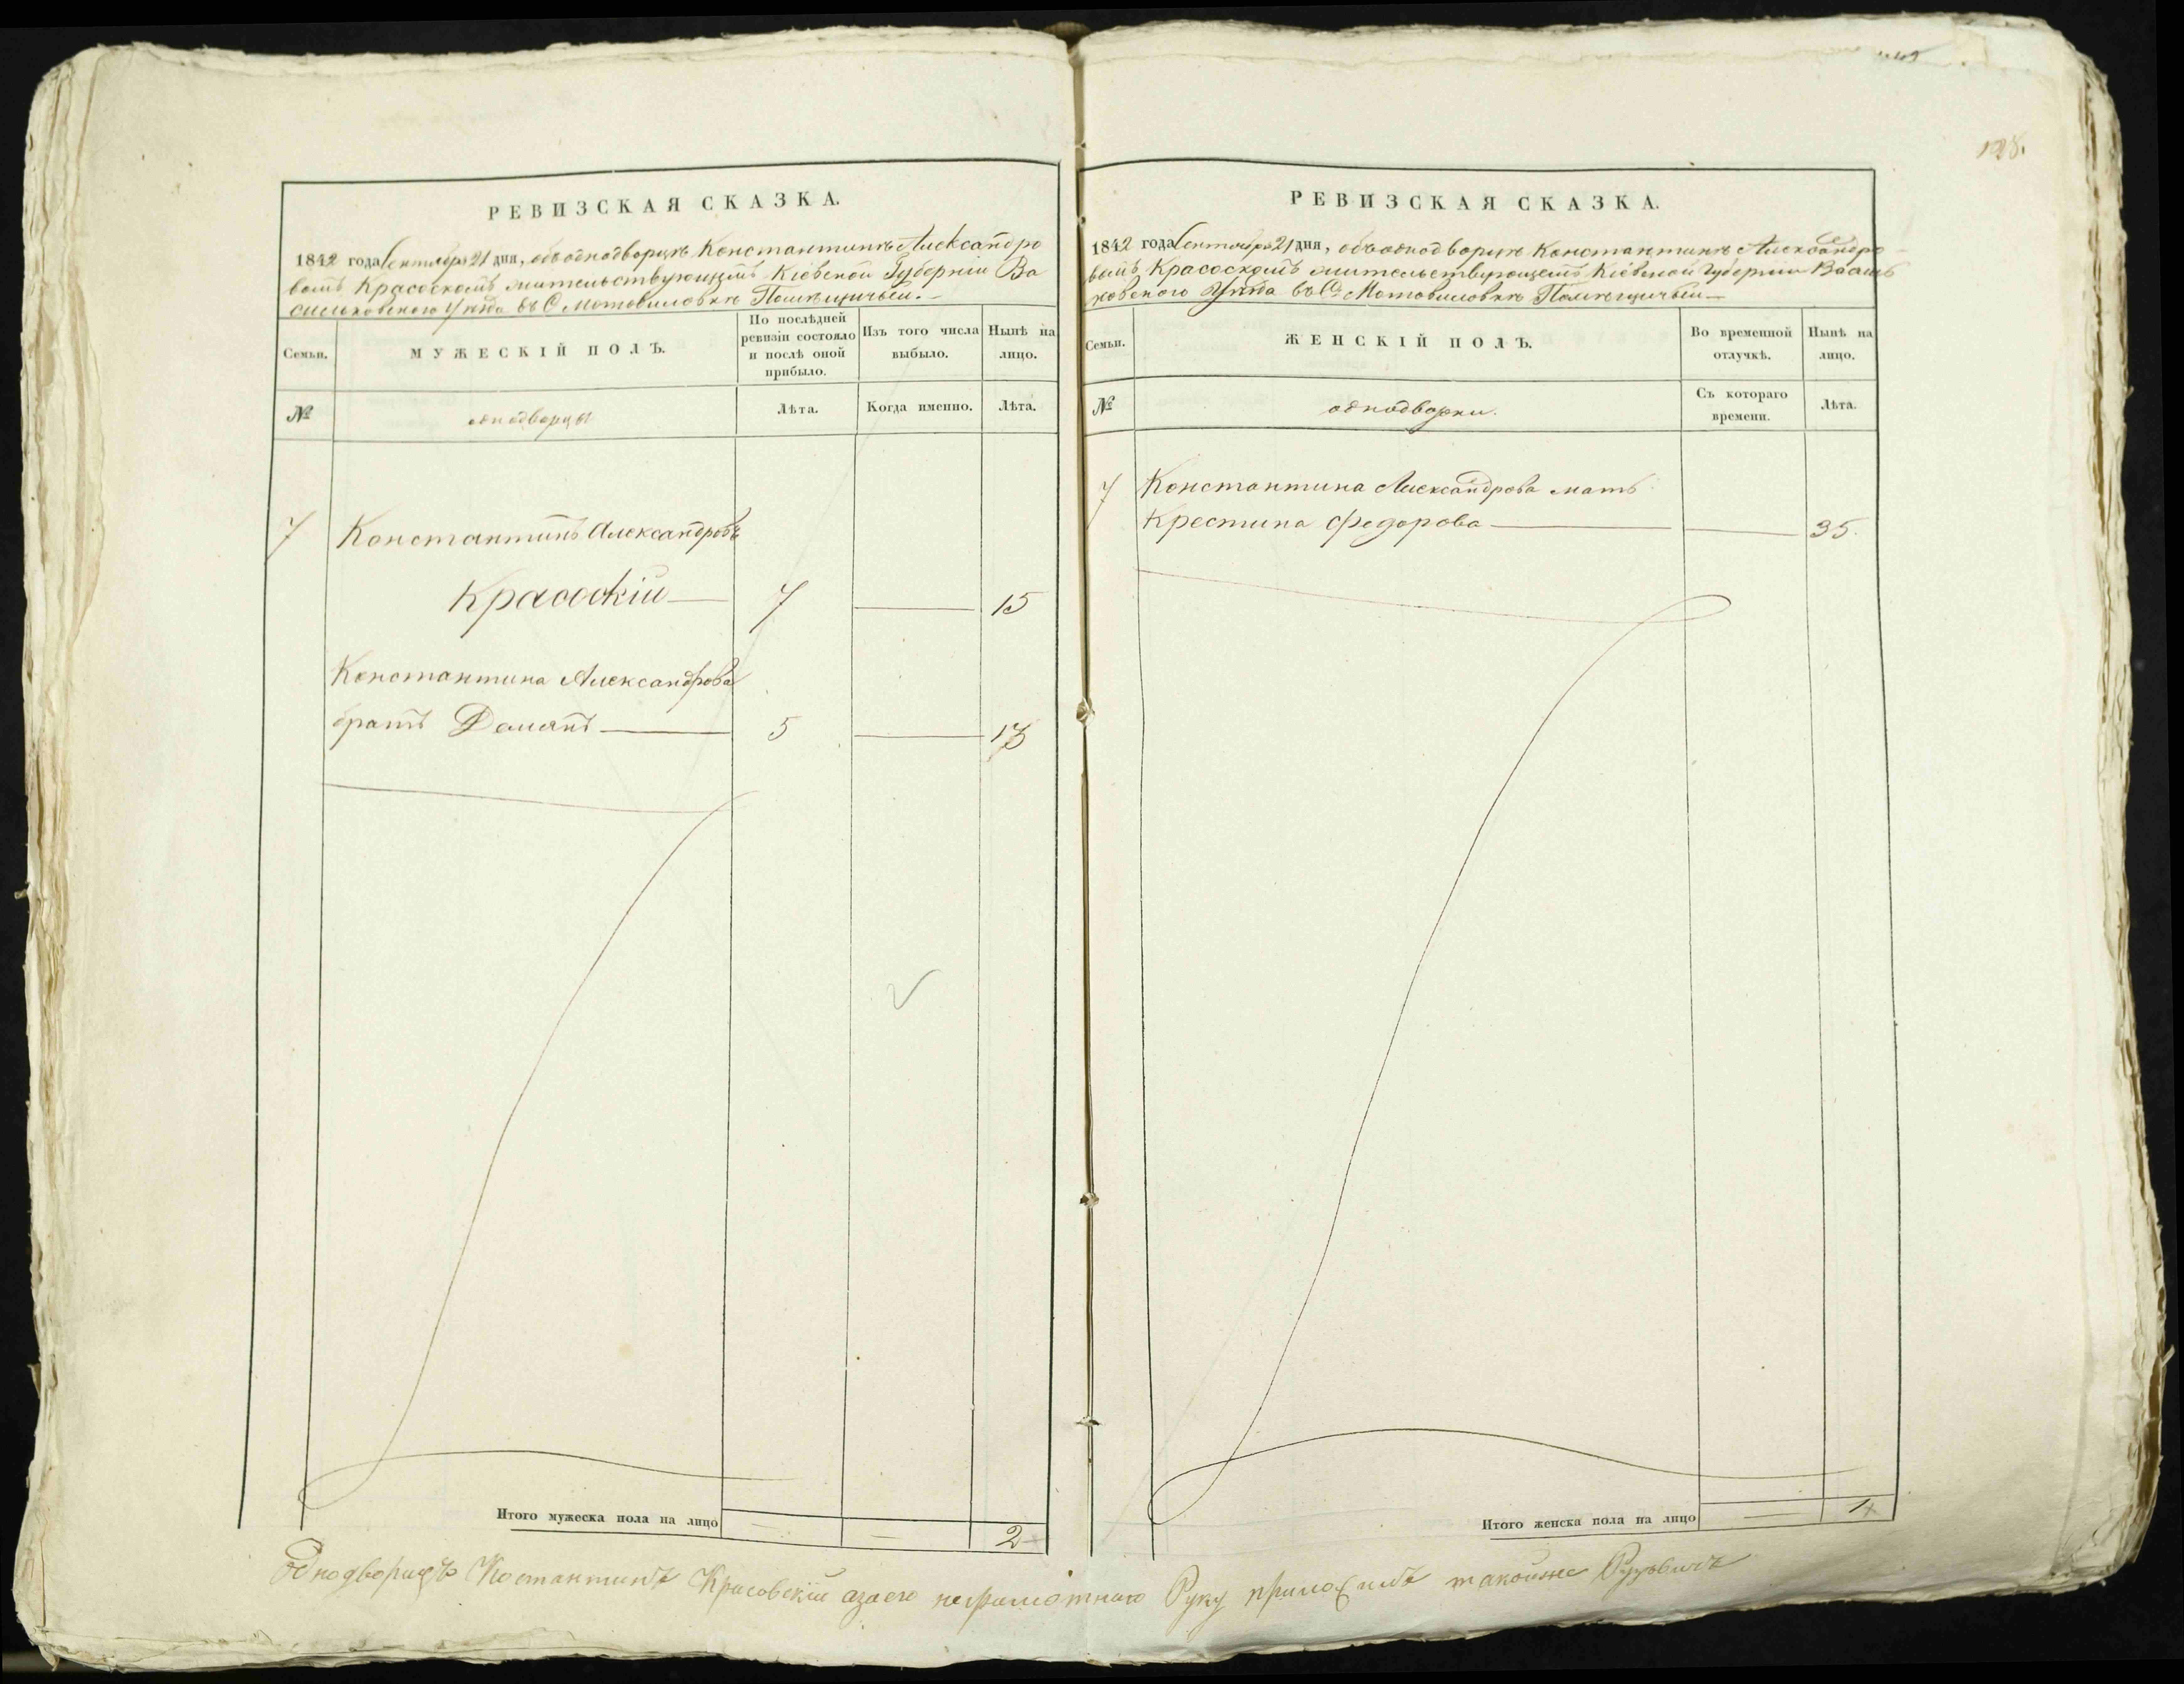 128.
РЕВИЗСКАЯ СКАЗКА.
1842 года Сентября 21 дня, объ однодворцѣ Константинѣ Александро
вомъ Красоскомъ жительствующемъ Кіевской Губерніи Ва
сильковского Уѣзда въ С Мотовиловкѣ Помѣщичьей.
Семьи.
МУЖЕСКІЙ ПОЛЪ.
По послѣдней ревизіи состояло и послѣ оной прибыло.
Изъ того числа выбыло.
Нынѣ на лицо.
№
однодворцы
Лѣта.
Когда именно.
Лѣта.
7 Константинъ Александровъ
Красоскій 7 15
Константина Александрова
братъ Демянъ 5 13
Итого мужеска пола на лицо 2
РЕВИЗСКАЯ СКАЗКА.
1842 года Сентября 21 дня, объ однодворцѣ Константинѣ Александро
вомъ Красоскомъ жительствующемъ Кіевской Губерніи Василь
ковского Уѣзда въ С Мотовиловкѣ Помѣщичьей
Семьи.
ЖЕНСКІЙ ПОЛЪ.
Во временной отлучкѣ.
Нынѣ на лицо.
№
однодворки.
Съ котораго времени.
Лѣта.
7 Константина Александрова мать
Крестина Федорова 35.
Итого женска пола на лицо 1
Однодворицъ Костантинъ Красовскій азаего неграмотнаго Руку приложилъ такойже